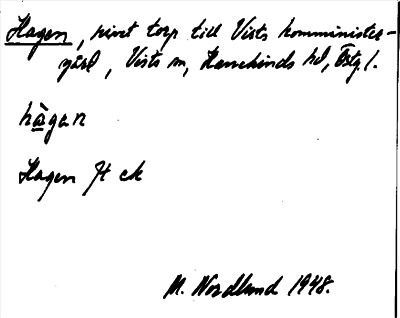 Hagen, rivet torp till Vists komminister-
gård, Vists sn, Hanekinds hd, Östg. l.
hàgan
Hagen Jt ck
M. Nordlund 1948.